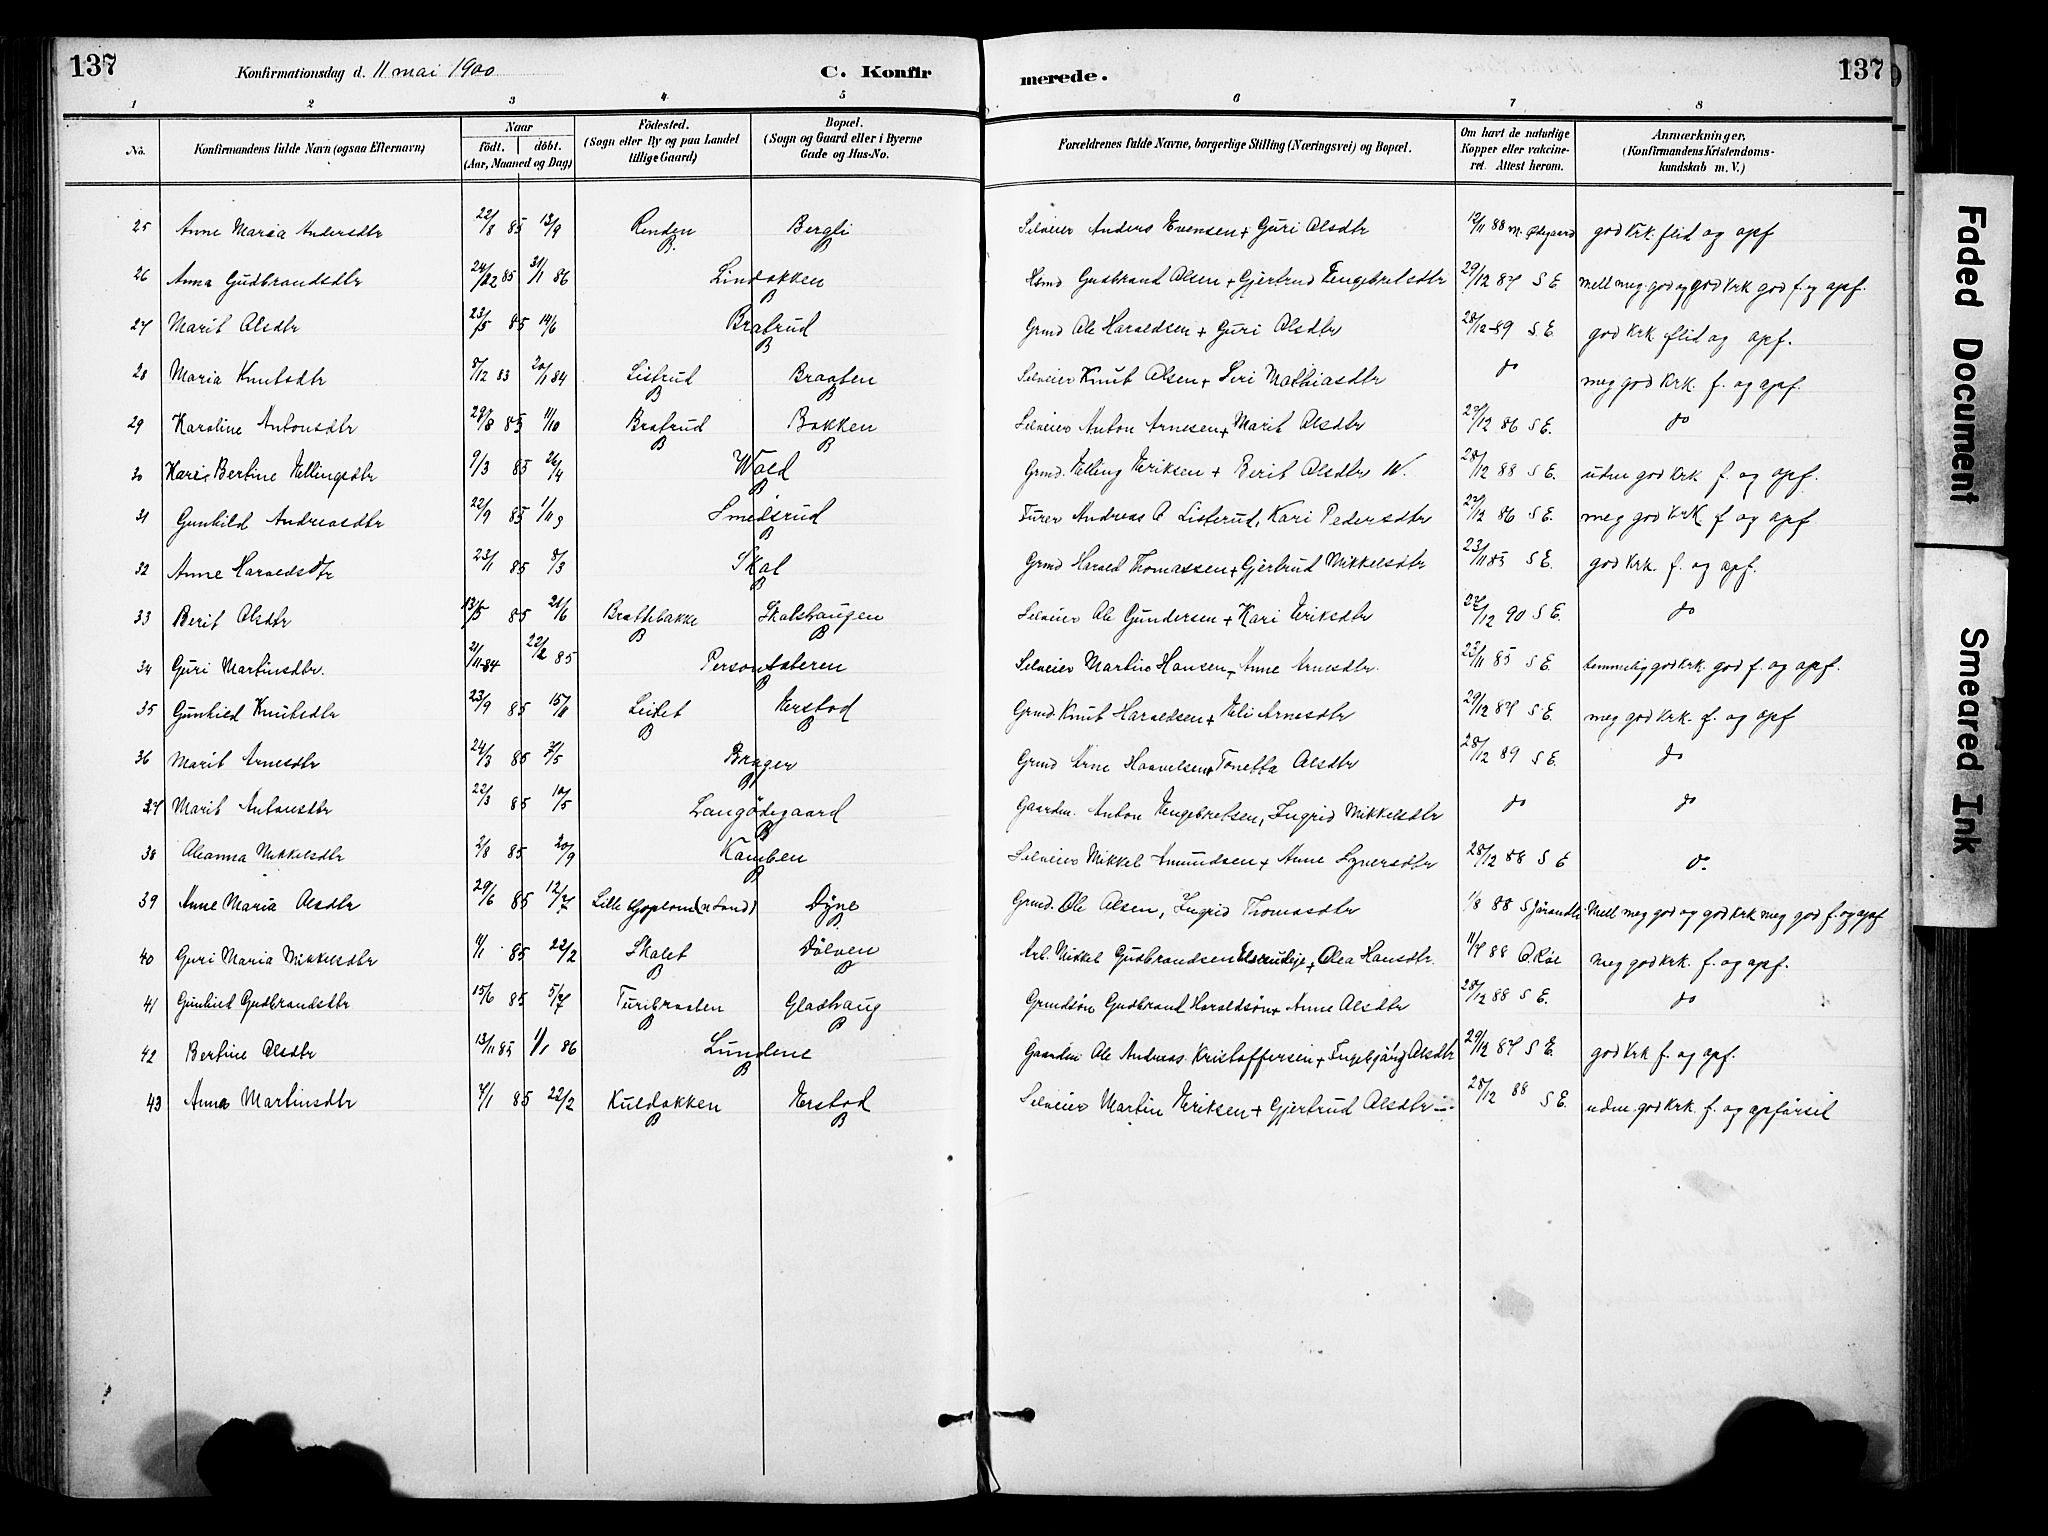 137 Konfirmationsdag d. 11 mai 1900 C. Konfir merede. 137
1 2 3 4 5 6 7 8
No. Konfirmandens fulde Navn (ogsaa Efternavn) Naar födt. döbt. (Aar, Maaned og Dag) Födested. (Sogn eller By og paa Landet tillige Gaard) Bopæl. (Sogn og Gaard eller i Byerne Gade og Hus-No. Forældrenes fulde Navne, borgerlige Stilling (Næringsvei) og Bopæl. Om havt de naturlige Kopper eller vakcineret. Attest herom. Anmærkninger. (Konfirmandens Kristendomskundskab m. V.)
25 Anne Maria Andersdtr 22/8 85 13/9 Renden B. Bergli Selveier Anders Evensen + Guri Olsdtr 12/11 88 M. Ødegaard god Krk. flid og opf
26 Anna Gudbrandsdtr 24/12 85 31/1 86 Lindokken B Hsmd Gudbrand Olsen + Gjertrud Engebretsdtr 29/12 87 S E. mell meg. god og god Krk god f. og opf.
27 Marit Olsdtr 23/5 85 14/6 Bratrud B Grmd Ole Haraldsen + Guri Olsdtr 28/12 89 S E. god Krk flid og opf.
28 Maria Knutsdtr 8/12 83 20/1 84 Listrud B Braaten B Selveier Knut Olsen + Siri Mathiasdtr do meg god Krk. f. og opf.
29 Karoline Antonsdtr 28/8 85 11/10 Bratrud B Bakken B Selveier Anton Arnesen + Marit Olsdtr 29/12 86 S E. do
30 Kari Bertine Ellingsdtr 9/3 85 26/4 Wold B Grmd. Elling Eriksen + Berit Olsdtr W. 28/12 88 S E. uden god Krk f. og opf.
31 Gunhild Andreasdtr 22/9 85 1/11 Smedsrud B Andreas O Listerud, Kari Pedersdtr 27/12 86 S E. meg god Krk f og opf
32 Anne Haraldsdtr 23/1 85 8/3 Skol B Grmd Harald Thomassen + Gjertrud Mikkelsdtr 23/11 85 S E. god Krk. f. og opf.
33 Berit Olsdtr 13/5 85 21/6 Brattebakke B Skolshaugen B Selveier Ole Gundersen + Kari Eriksdtr 27/12 90 S E. do
34 Guri Martinsdtr. 21/11 84 22/2 85 Persontøteren B Selveier Martin Hansen + Anne Arnesdtr. 23/11 85 S E. temmelig god Krk. god f. og opf.
35 Gunhild Knutsdtr 23/9 85 15/11 Leidet B Erstad B Grmd. Knut Haraldsen + Eli Arnesdtr 29/12 87 S E. meg god Krk. f. og opf
36 Marit Arnesdtr 24/3 85 /5 Brager B Grmd Arne Haavelsen + Tonetta Olsdtr 28/12 89 S E. do
37 Marit Antonsdtr 22/3 85 10/5 Langödegaard B Gaardm. Anton Engebretsen, Ingrid Mikkelsdtr do do
38 Oleanna Mikkelsdtr 2/8 85 20/9 Kamben B Selveier Mikkel Amundsen + Anne Synersdtr 28/12 88 S E do
39 Anne Maria Olsdtr 29/6 85 12/7 Lille Goplom (n Land) Dyne B Grmd. Ole Olsen, Ingrid Thomasdtr 1/8 88 S Jørandli Mell meg god og god Krk meg god f. og opf
40 Guri Maria Mikkelsdtr 11/1 85 22/2 Skolet B Dölven B Arb. Mikkel Gudbrandsen Elsrudeje + Olea Hansdtr. 11/7 88 O. Röe meg god Krk. f. og opf.
41 Gunhild Gudbrandsdtr 15/6 85 5/7 Turibraaten B Gladhaug B Grmdsön Gudbrand Haraldsön + Anne Olsdtr 28/12 88 S E. do
42 Bertine Olsdtr 13/11 85 1/1 86 Lundene B Gaardm Ole Andreas Kristoffersen + Ingebjørg Olsdtr 29/12 87 S E. god Krk f. og opf.
43 Anna Martinsdtr 7/1 85 22/2 Kuldokken B Erstad B Selveier Martin Eriksen + Gjertrud Olsdtr 28/12 88 S E. udm. god Krk. f. og opførsel
Faded Document
Smeared Ink